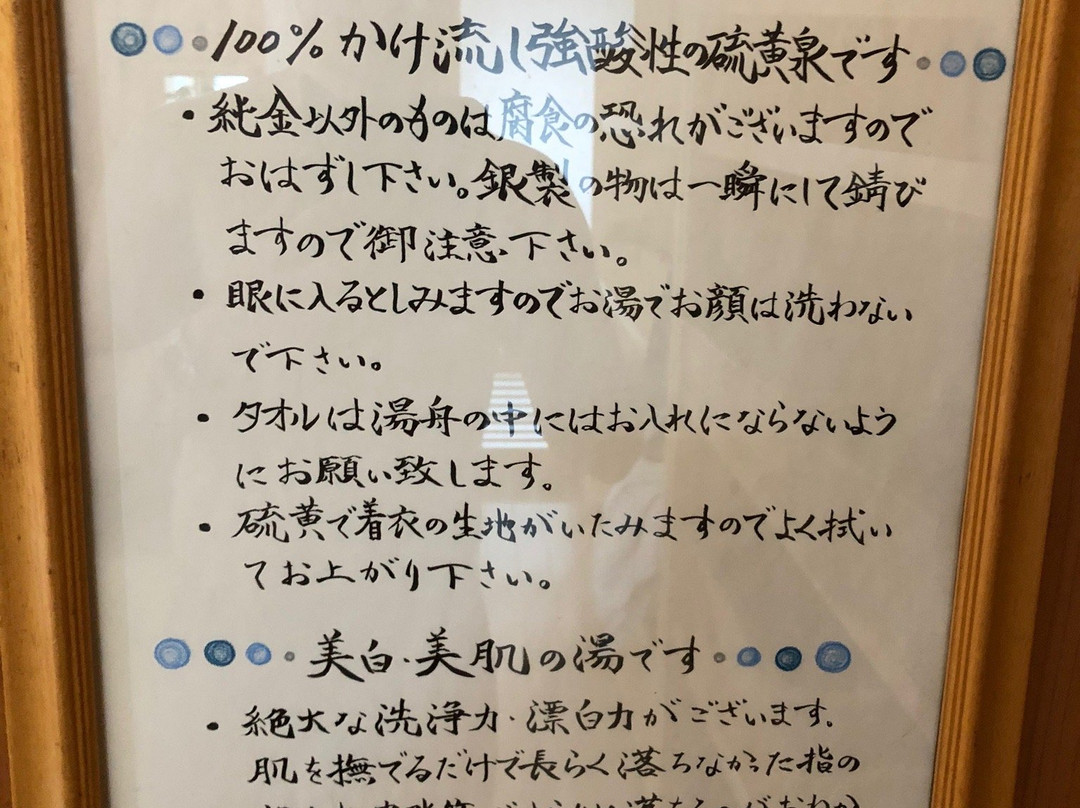 100%かけ流し強酸性の硫黄泉です
・純金以外のものは腐食の恐れがございますので
おはずし下さい。銀製の物は一瞬にして錆び
ますので御注意下さい。
・眼に入るとしみますのでお湯でお顔は洗わない
で下さい。
・タオルは湯舟の中にはお入れにならないよう
にお願い致します。
・硫黄で着衣の生地がいたみますのでよく拭い
てお上がり下さい。
美白・美肌の湯です
・絶大な洗浄力・漂白力がございます。
肌を撫でるだけで長らく落ちなかった指の